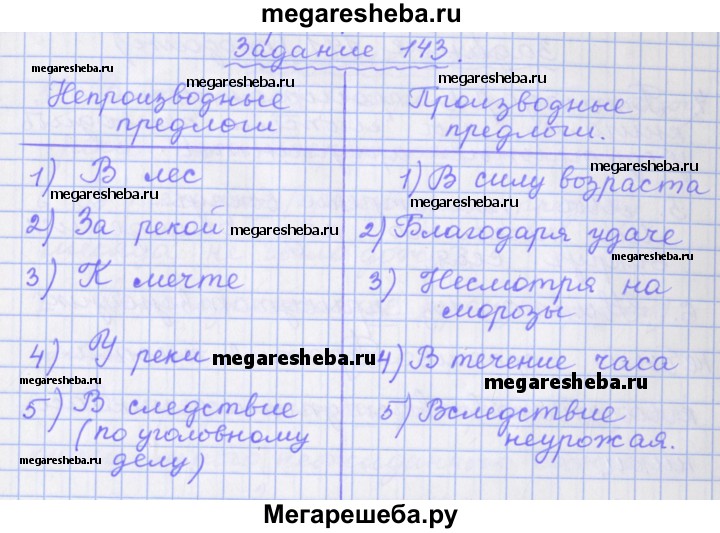 megaresheba.ru
Задание 143.
megaresheba.ru
megaresheba.ru
megaresheba.ru
Непроизводные
предлоги
Производные
предлоги.
megaresheba.ru
1) В лес
1) В силу возраста
megaresheba.ru
megaresheba.ru
2) За рекой
megaresheba.ru
2) Благодаря удаче
megaresheba.ru
3) К мечте
3) Несмотря на
морозы
4) У реки
megaresheba.ru
4) В течение часа
megaresheba.ru
megaresheba.ru
5) В следствие
(по уголовному
делу)
5) Вследствие
неурожая.
megaresheba.ru
megaresheba.ru
Мегарешеба.ру